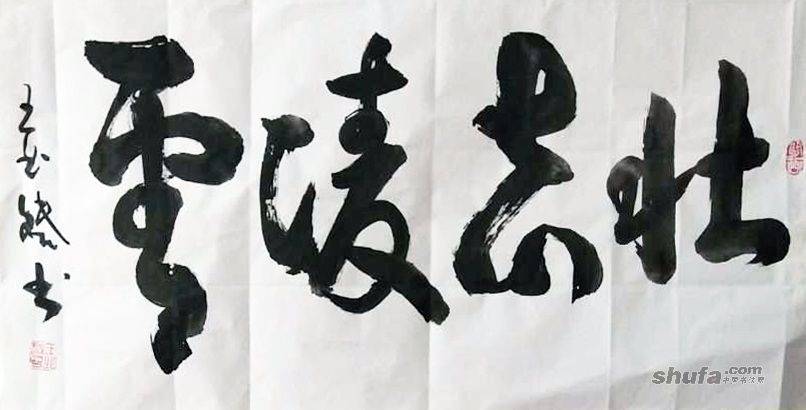 壮志凌雲
王玉 书
shufa.com